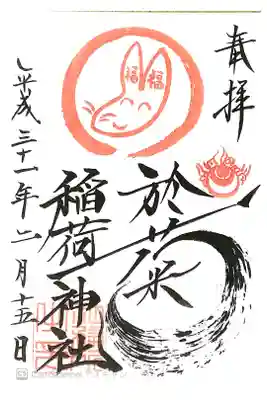 奉拝
於菊
稲荷神社
平成三十一年二月十五日
福 福